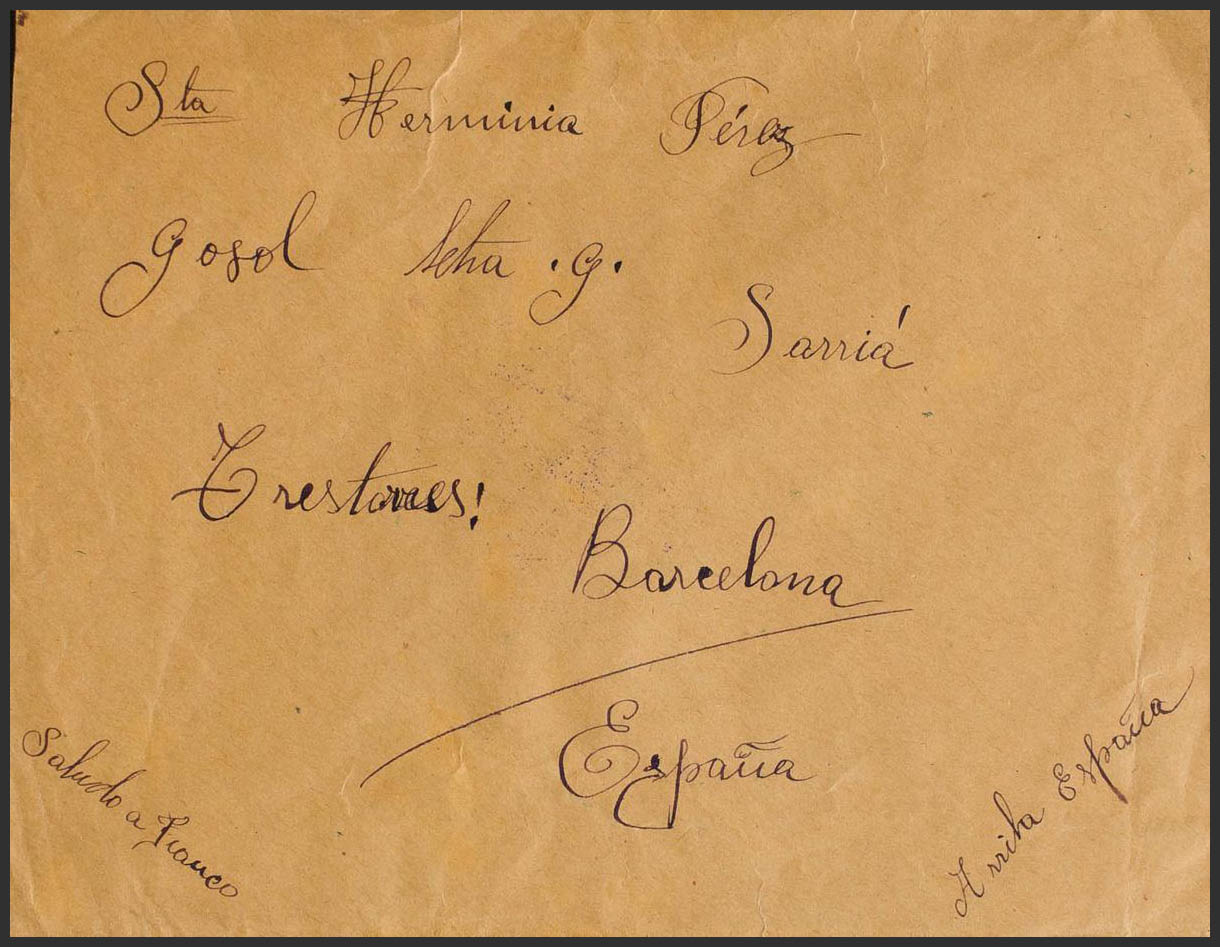 Sta Herminia Pérez
Gosol letra .G.
Sarriá
Trestorres!
Barcelona
España
Saludo a Franco
Arriba España